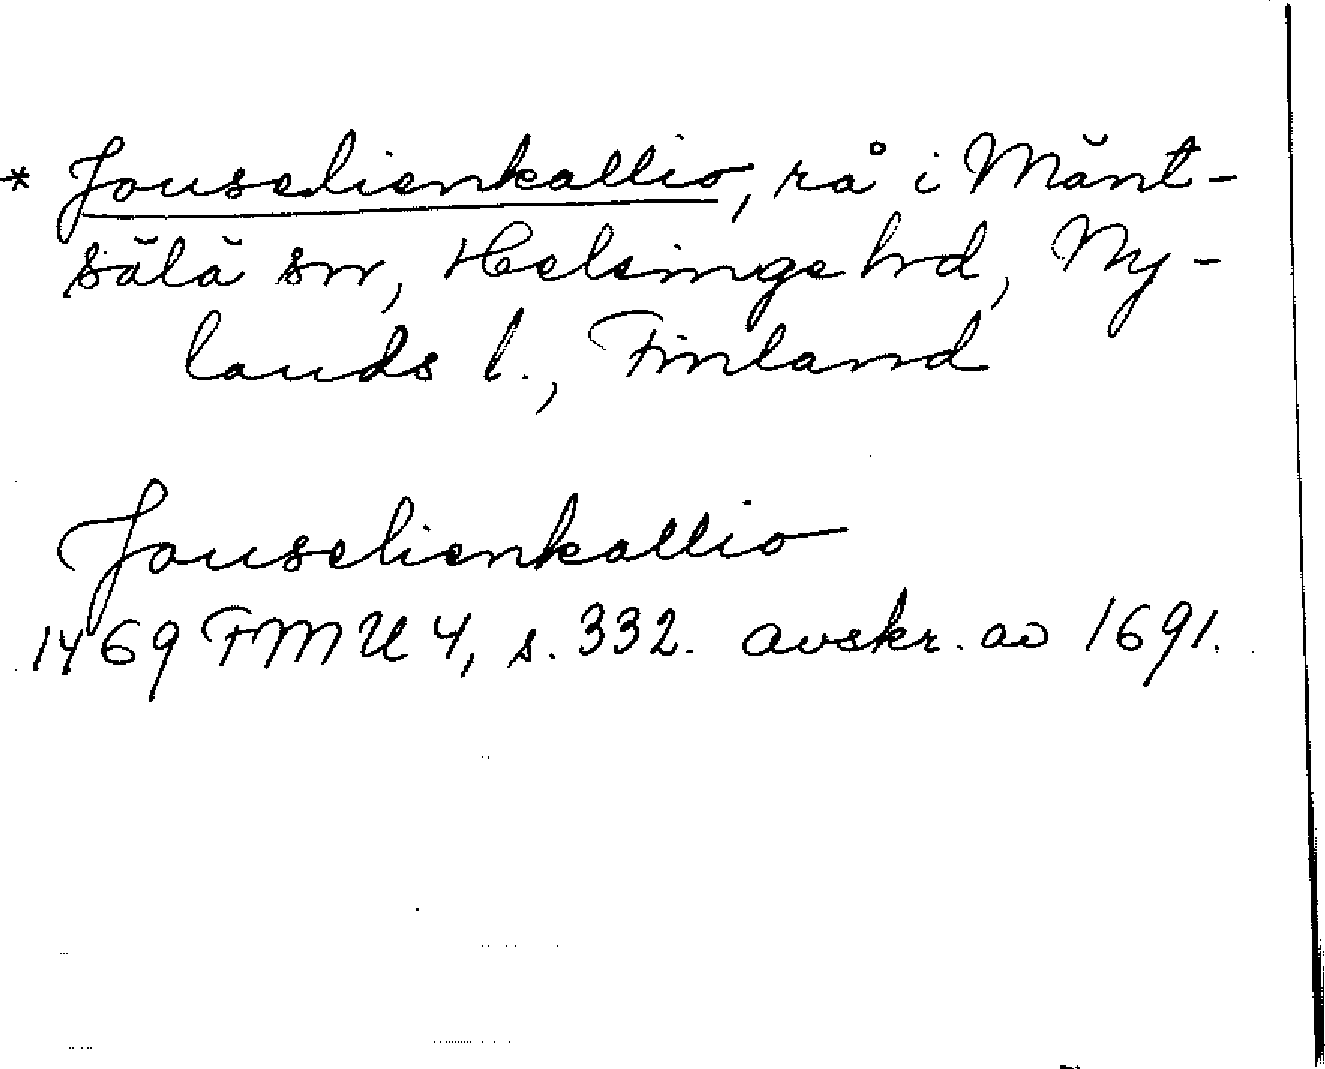 * Jouselienkallio, rå i Mänt-
sälä sn, Helsinge hrd, Ny-
lands l., Finland
Jouselienkallio
1469 FMU 4, s. 332. avskr. av 1691.